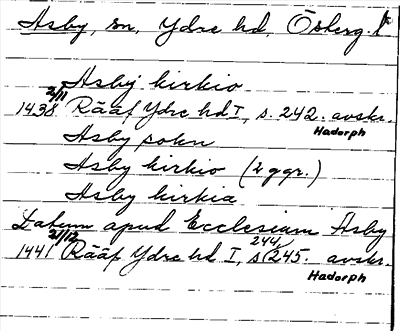 Asby, sn, Ydre hd, Österg. l
Asby kirkio
1438 2/11 Rääf Ydre hd I, s. 242. avskr.
Hadorph
Asby sokn
Asby kirkio (2 ggr.)
Asby kirkia
Datum apud Ecclesium Asby
1441 21/12 Rääf Ydre hd I, s 244, 245. avskr.
Hadorph